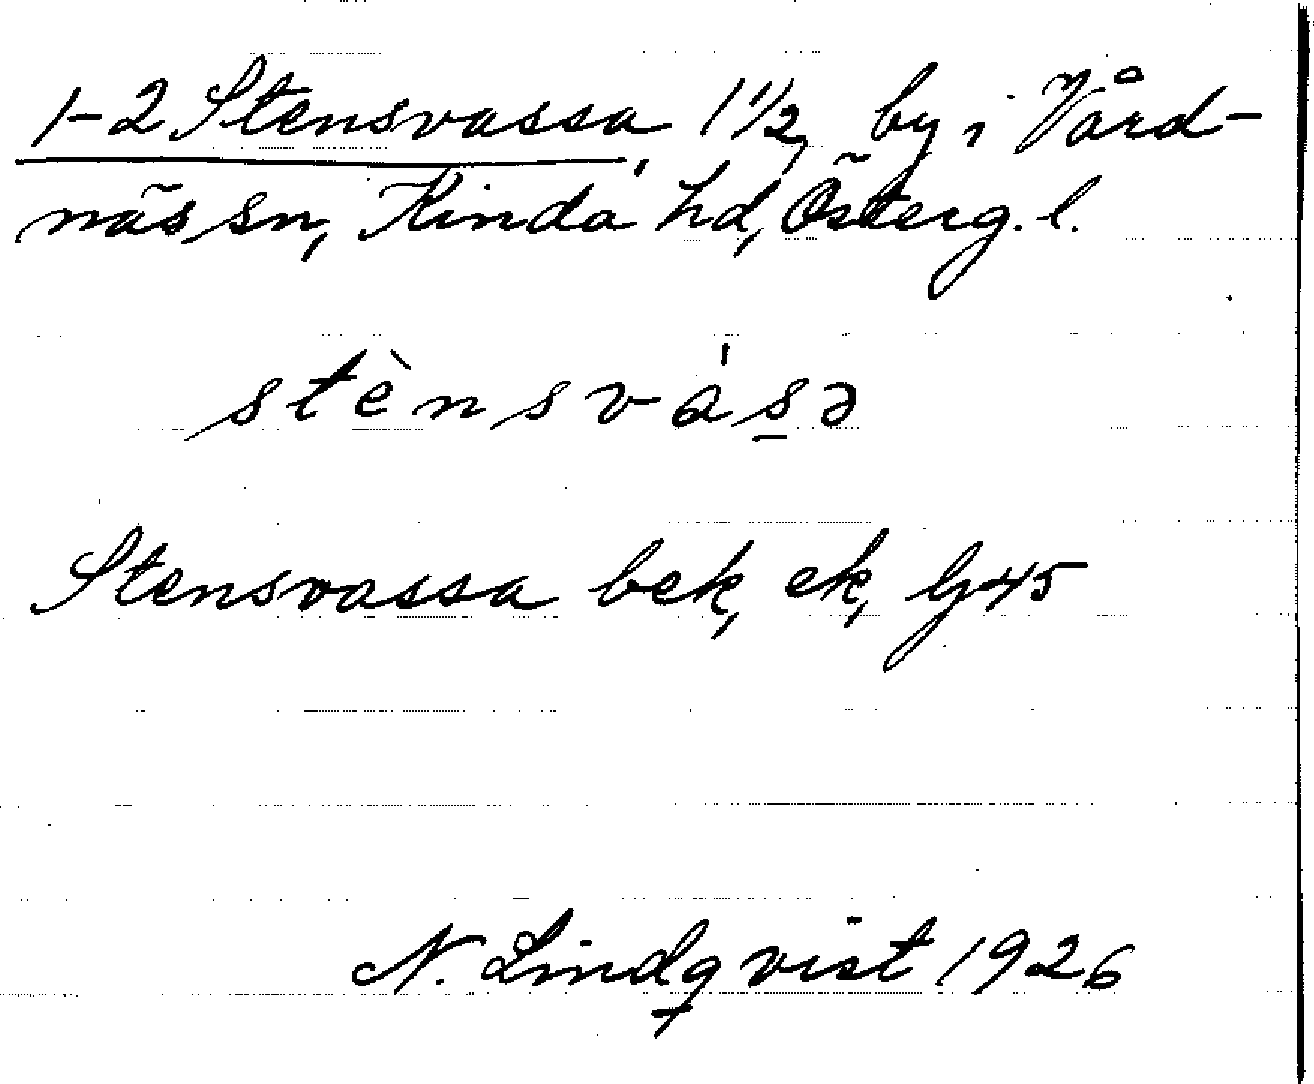 1-2 Stensvassa, 1 1/2, by i Vård-
näs sn, Kinda hd, Österg. l.
stènsvás̱ə
Stensvassa bek, ek, Gj45
N. Lindqvist 1926